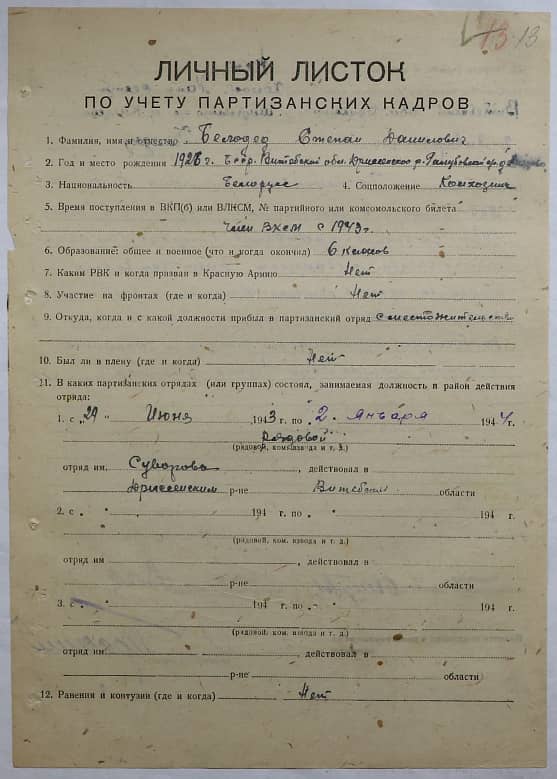 13 13
ЛИЧНЫЙ ЛИСТОК
ПО УЧЕТУ ПАРТИЗАНСКИХ КАДРОВ
1. Фамилия, имя и отчество Белодед Степан Данилович
2. Год и место рождения 1926 г. БССР. Витебской обл. Дриссенского р.
3. Национальность Белорусс 4. Соцположение Колхозник
5. Время поступления в ВКП(б) или ВЛКСМ, № партийного или комсомольского билета
Член с 1943 г.
6. Образование: общее и военное (что и когда окончил) 6 классов
7. Каким РВК и когда призван в Красную Армию Нет
8. Участие на фронтах (где и когда) Нет
9. Откуда, когда и с какой должности прибыл в партизанский отряд с местожительства
10. Был ли в плену (где и когда) Нет
11. В каких партизанских отрядах (или группах) состоял, занимаемая должность и район действия
отряда:
1. с „29 " Июня 1943 г. по „ 2 " января 1944 г.
Рядовой
(рядовой, ком. взвода и т. д.)
отряд им. Суворова, действовал в
Дриссенским р-не Витебской области
2. с „ " 194 г. по „ " 194 г.
(рядовой, ком. взвода и т. д.)
отряд им , действовал в
р-не области
3. с „ " 194 г. по „ " 194 г.
(рядовой, ком. взвода и т. д.)
отряд им , действовал в
р-не области
12. Ранения и контузии (где и когда) Нет